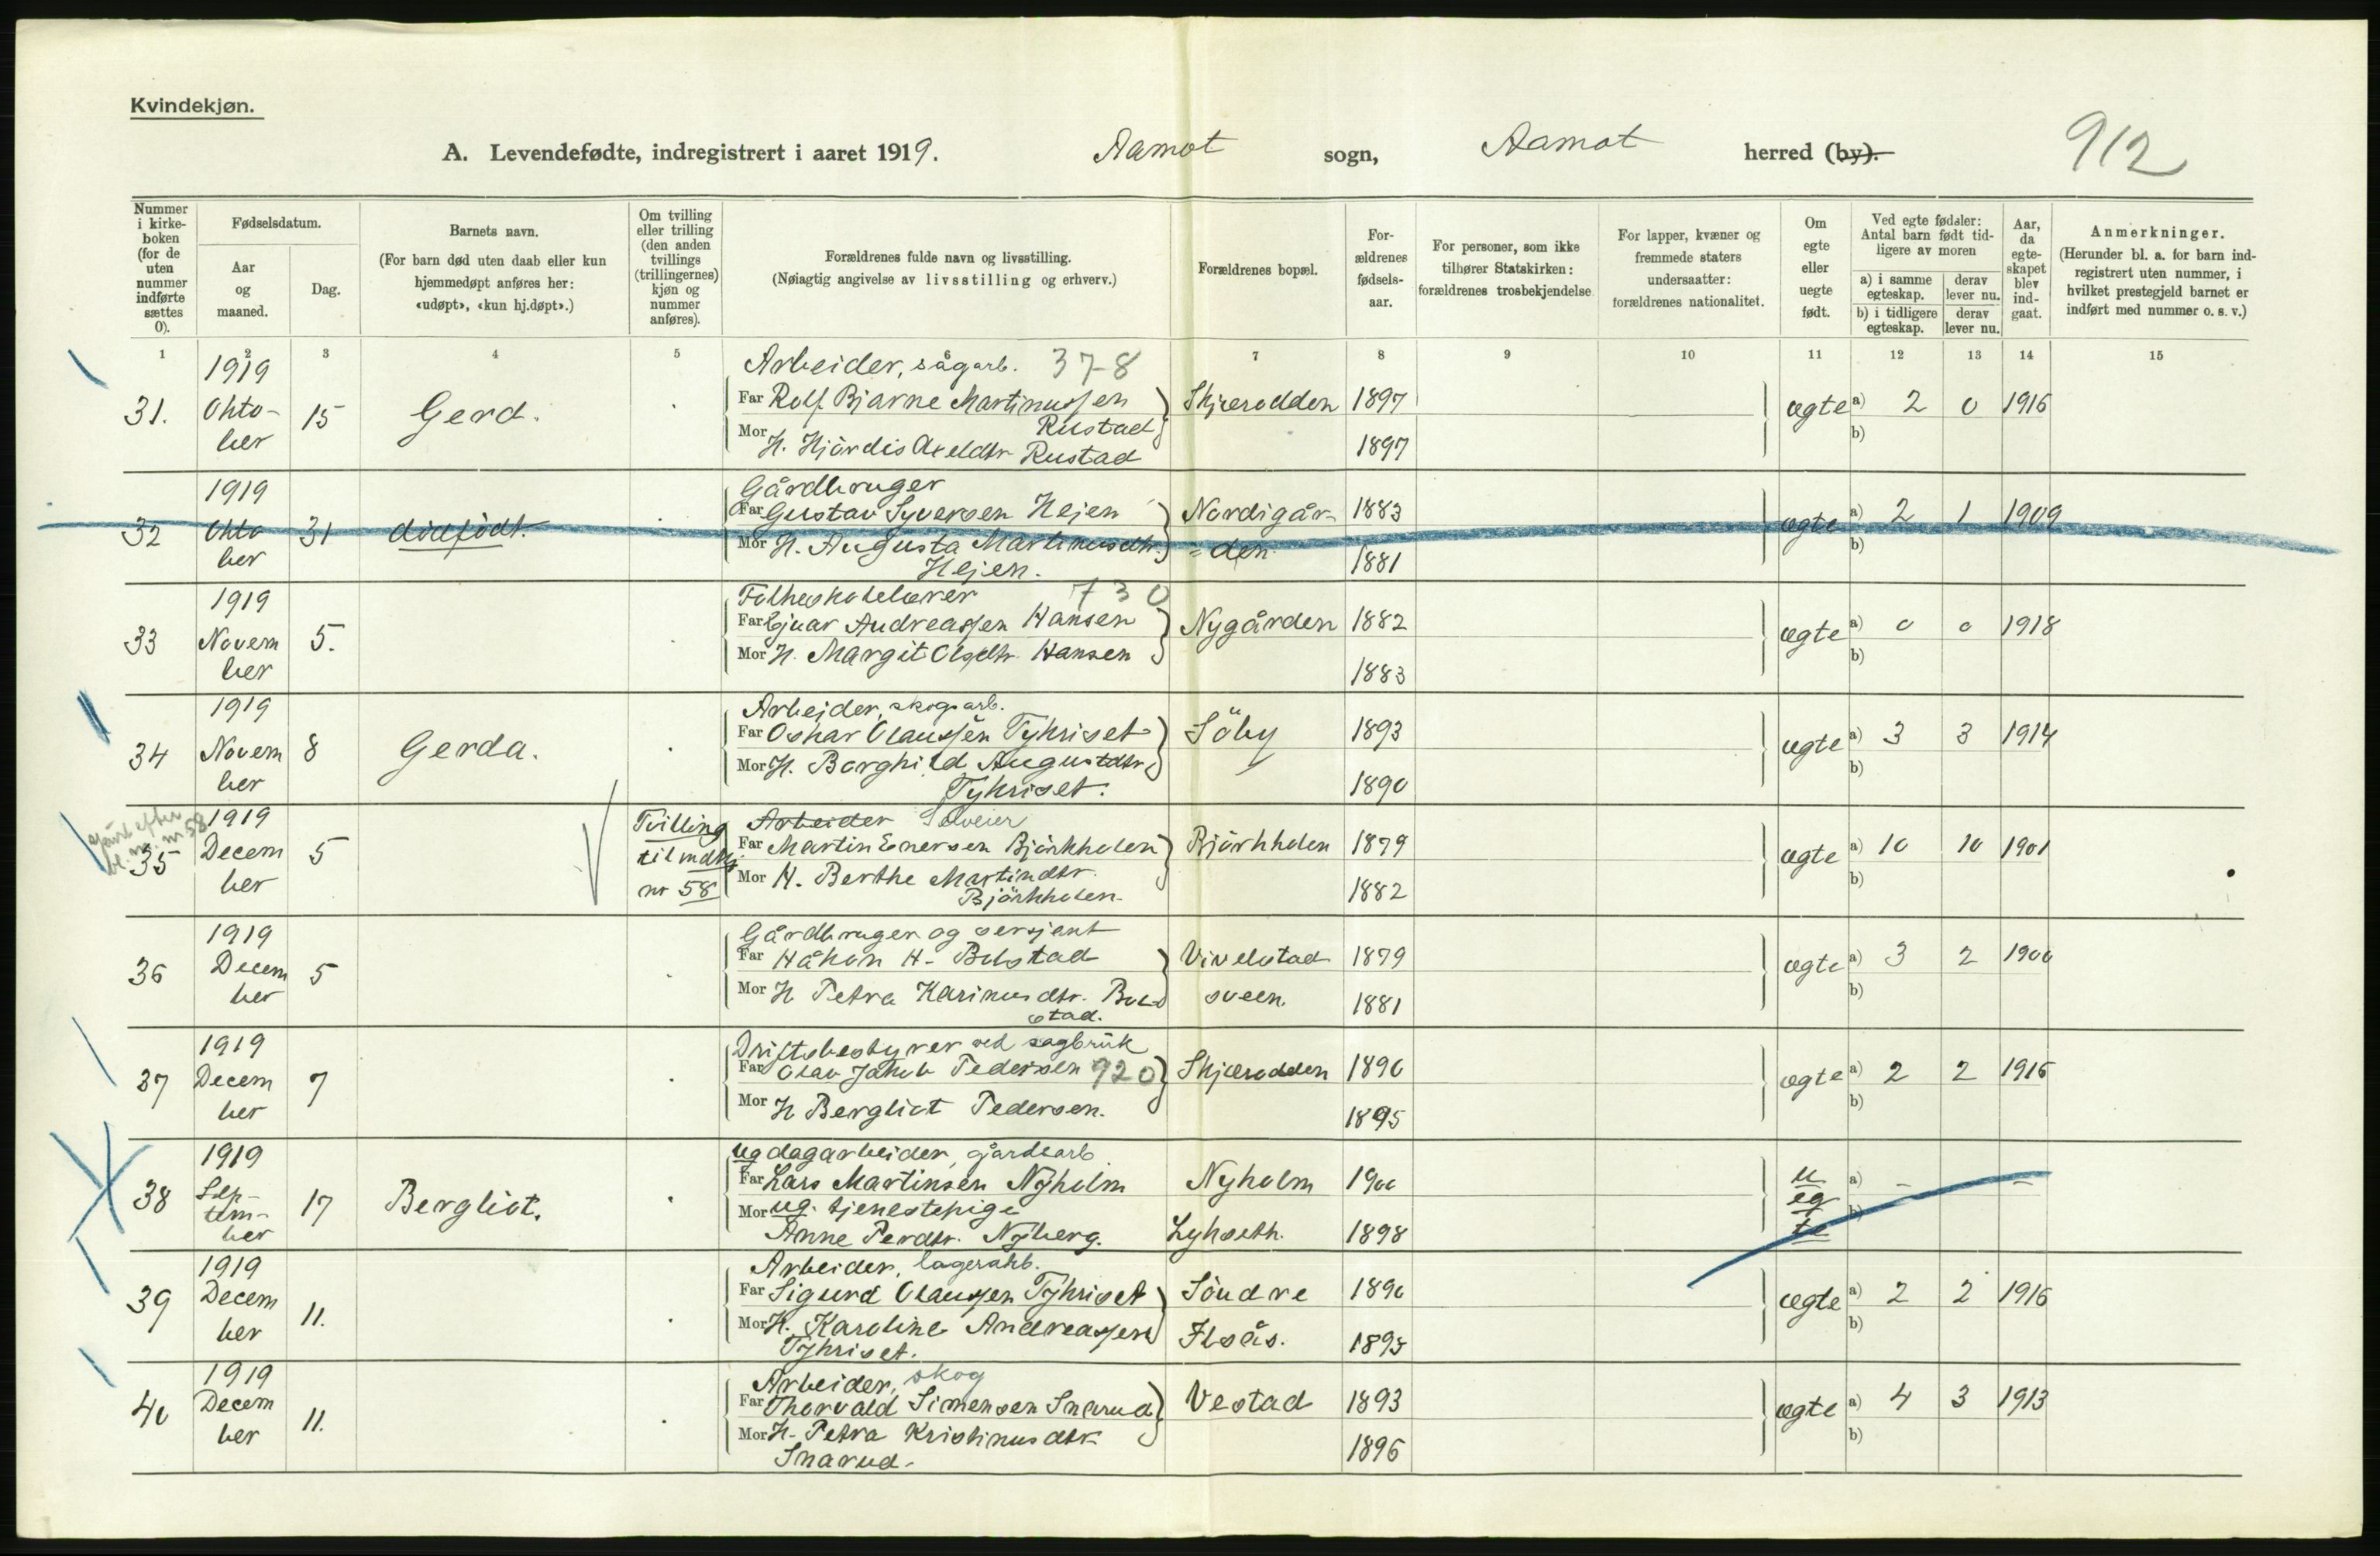 Kvindekjøn.
A. Levendefødte, indregistrert i aaret 1919. Aamot sogn, Aamot herred (by). 912
Nummer i kirkeboken (for de uten nummer indførte sættes 0).
Fødselsdatum.
Aar og maaned.
Dag.
Barnets navn.
(For barn død uten daab eller kun hjemmedøpt anføres her: «udøpt», «kun hj.døpt».)
Om tvilling eller trilling (den anden tvillings (trillingernes) kjøn og nummer anføres).
Forældrenes fulde navn og livsstilling.
(Nøiagtig angivelse av livsstilling og erhverv.)
Forældrenes bopæl.
Forældrenes fødselsaar.
For personer, som ikke tilhører Statskirken: forældrenes trosbekjendelse
For lapper, kvæner og fremmede staters undersaatter: forældrenes nationalitet.
Om egte eller uegte født.
Ved egte fødsler: Antal barn født tidligere av moren
a) i samme egteskap. derav lever nu.
b) i tidligere egteskap. derav lever nu.
Aar, da egteskapet blev indgaat.
Anmerkninger.
(Herunder bl. a. for barn indregistrert uten nummer, i hvilket prestegjeld barnet er indført med nummer o. s. v.)
1 2 3 4 5 6 7 8 9 10 11 12 13 14 15
1919 Arbeider, sågarb. 37-8
31. Okto- 15 Gerd. Far Rolf Bjarne Martinussen Skjærodden 1897 ægte a) 2 0 1916
ber Rustad
Mor H. Hjördis Axeldtr Rustad 1897 b)
1919 Gårdbruger
32 Okto 31 dödfödt. Far Gustav Syversen Hejen Nordigår- 1883 ægte a) 2 1 1909
ber Mor H. Augusta Martinusdtr. =den 1881 b)
Hejen.
1919 Folkeskolelærer 730
33 Novem 5. Far Ejnar Andreassen Hansen Nygården 1882 ægte a) 0 0 1918
ber Mor H. Margit Olsdtr. Hansen 1883 b)
1919 Arbejder, skogsarb.
34 Novem 8 Gerda. Far Oskar Olaussen Tykriset Söby 1893 ægte a) 3 3 1914
ber Mor H. Borghild Augustdtr. 1890 b)
Tykriset.
1919 Tvilling Arbeider Selveier
35 Decem 5 til mdkj Far Martin Enersen Björkholen Björkholen 1879 ægte a) 10 10 1901
ber nr 58 Mor H. Berthe Martindtr. 1882 b)
Björkholen.
1919 Gårdbruger og sersjant
36 Decem 5 Far Håkon H. Bolstad Vivelstad 1879 ægte a) 3 2 1900
ber Mor H Petra Karinusdtr. Bol- sveen. 1881 b)
stad.
1919 Driftsbestyrer ved sagbruk
37 Decem 7 Far Olav Jakob Pedersen 920 Skjærodden 1890 ægte a) 2 2 1916
ber Mor H Bergliot Pedersen. 1895 b)
1919 ug dagarbeider, gårdsarb.
38 Sep- 17 Bergliot. Far Lars Martinsen Nyholm Nyholm 1900 u a) - -
tem- Mor ug. tjenestepige eg b)
ber Anne Perdtr. Nyberg. Lykseth. 1898 te
1919 Arbeider, lagerarb.
39 Decem 11. Far Sigurd Olaussen Tykriset Söndre 1890 ægte a) 2 2 1916
ber Mor H. Karoline Andreassen Ilsås. 1893 b)
Tykriset.
1919 Arbeider, skog
40 Decem 11. Far Thorvald Simensen Snarud Vestad 1893 ægte a) 4 3 1913
ber Mor H. Petra Kristinusdtr. 1896 b)
Snarud.